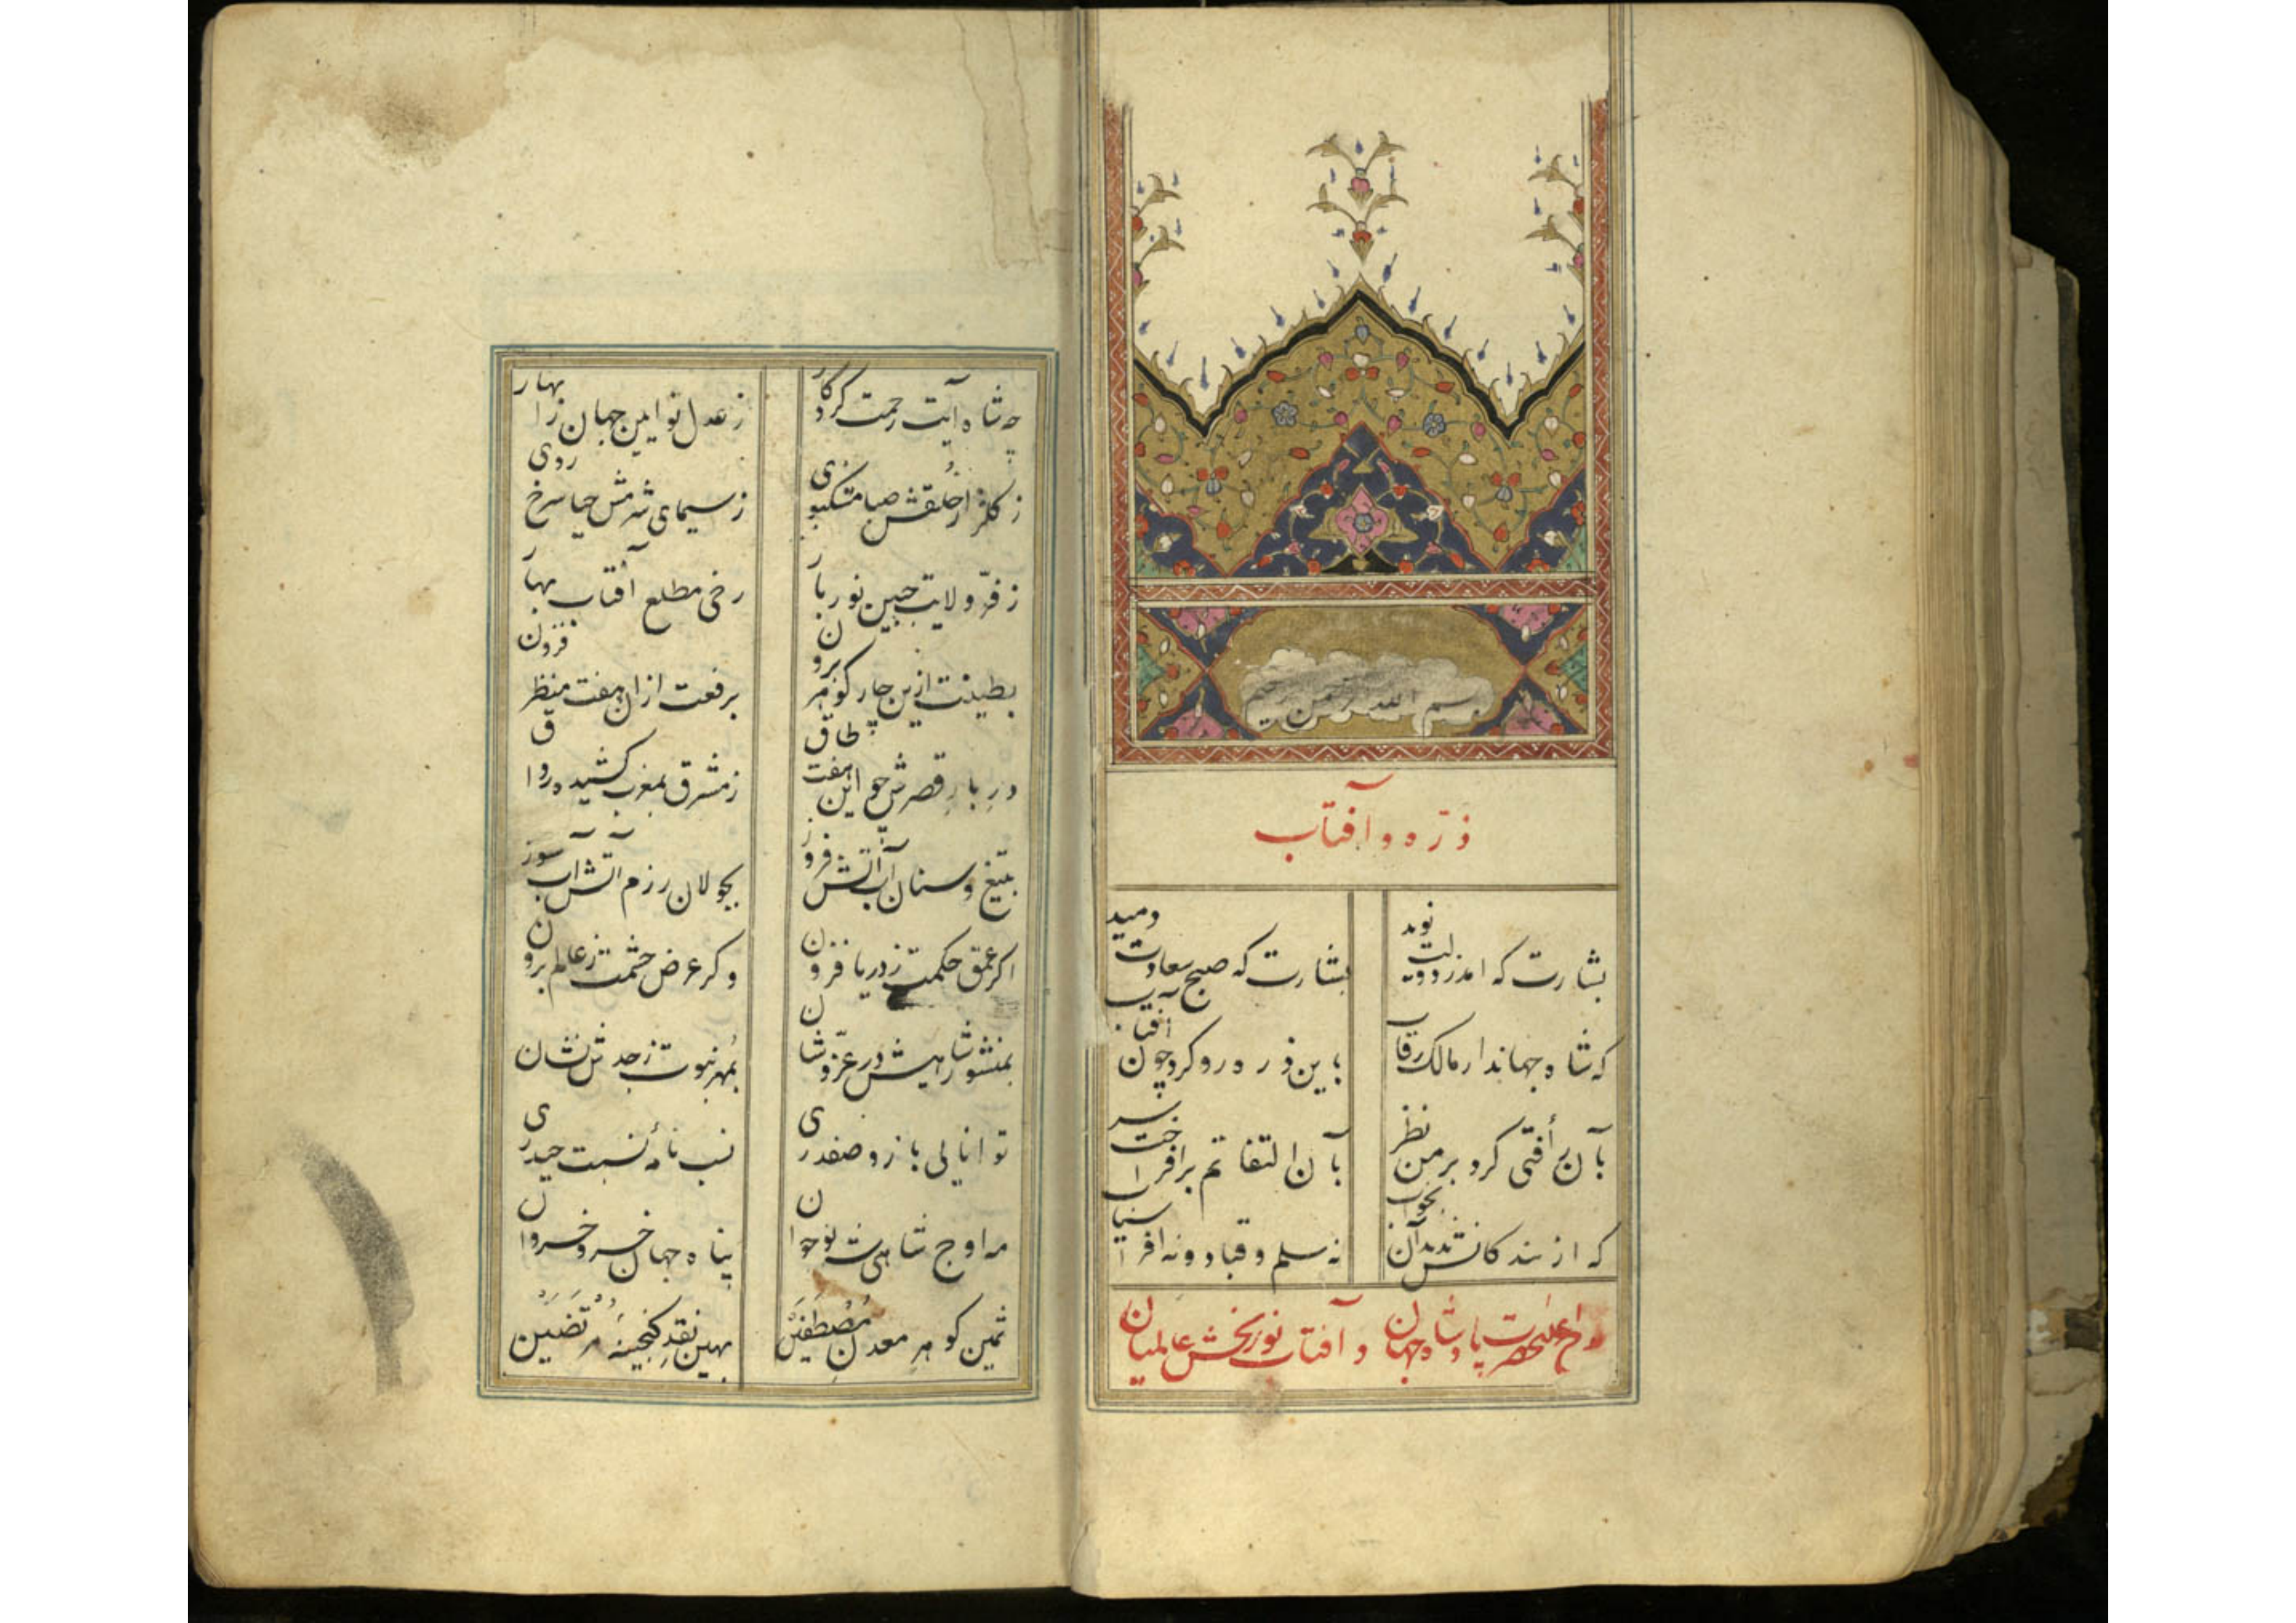 بسم الله الرحمن الرحیم
ذرّه و آفتاب
بشارت که امد ز دولت نوید بشارت که صبح سعادت دمید
که شاه جهاندار مالک رقاب باین ذره رو کرد چون آفتاب
بآن رأفتی کرد بر من نظر بآن التفاتم برافراخت سر
که از بندکانش ندید آن بخواب نه سلم و قباد و نه افراسیاب
اعلیحضرت پادشاه جهان و آفتاب نوربخش عالمیان
چه شاه آیت رحمت کردکار ز عدل تو این جهان را بهار
ز کلزار خُلقش صبا مشکبوی ز سیمای شرمش حیا سرخ روی
ز فرّ ولایت جبین نوربار رخی مطلع آفتاب بهار
بطینت ازین چار کوهر برون برفعت ازان هفت منظر فزون
درِ بارِ قصرش چو این هفت طاق ز مشرق بمغرب کشیده رواق
بتیغ و سنان آب آتش فروز بجولان رزم آتش آب سوز
اکر عمق حکمت ز دریا فزون وکر عرض حشمت ز عالم برون
بمنشور شاهیش در عزّ و شان بمُهر نبوت ز جدش نشان
توانایی بازو صفدری نسب نامهٔ نسبت حیدری
مه اوج شاهی شه نوجوان پناه جهان خسرو خسروان
ثمین کوهرِ معدنِ مُصْطَفَیَن بهین نقدِ کنجینهٔ مرتضین